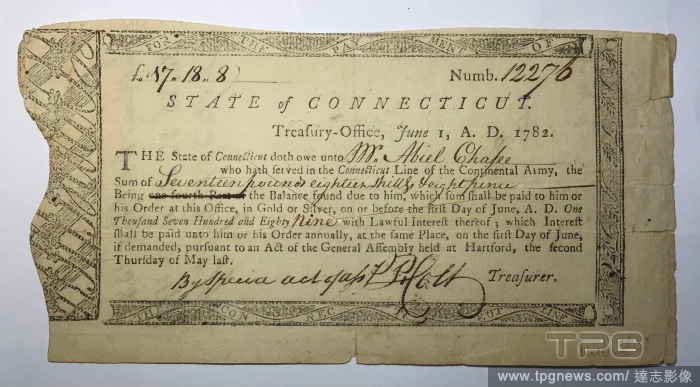 FOR THE PAYMENT OF
£ 17.. 18.. 8
Numb. 12276
STATE of CONNECTICUT.
Treasury-Office, June 1, A. D. 1782.
THE State of Connecticut doth owe unto Mr. Abiel Chafee
who hath served in the Connecticut Line of the Continental Army, the
Sum of Seventeen pounds eighteen shills & eight pence
Being one fourth Part of the Balance found due to him, which sum shall be paid to him or
his Order at this Office, in Gold or Silver, on or before the first Day of June, A. D. One
Thousand Seven Hundred and Eighty nine with Lawful Interest thereof; which Interest
shall be paid unto him or his Order annually, at the same Place, on the first Day of June,
if demanded, pursuant to an Act of the General Assembly held at Hartford, the second
Thursday of May last.
By special act of ass P. Colt Treasurer.
CON NEC
TPG
www.tpgnews.com/ 達志影像